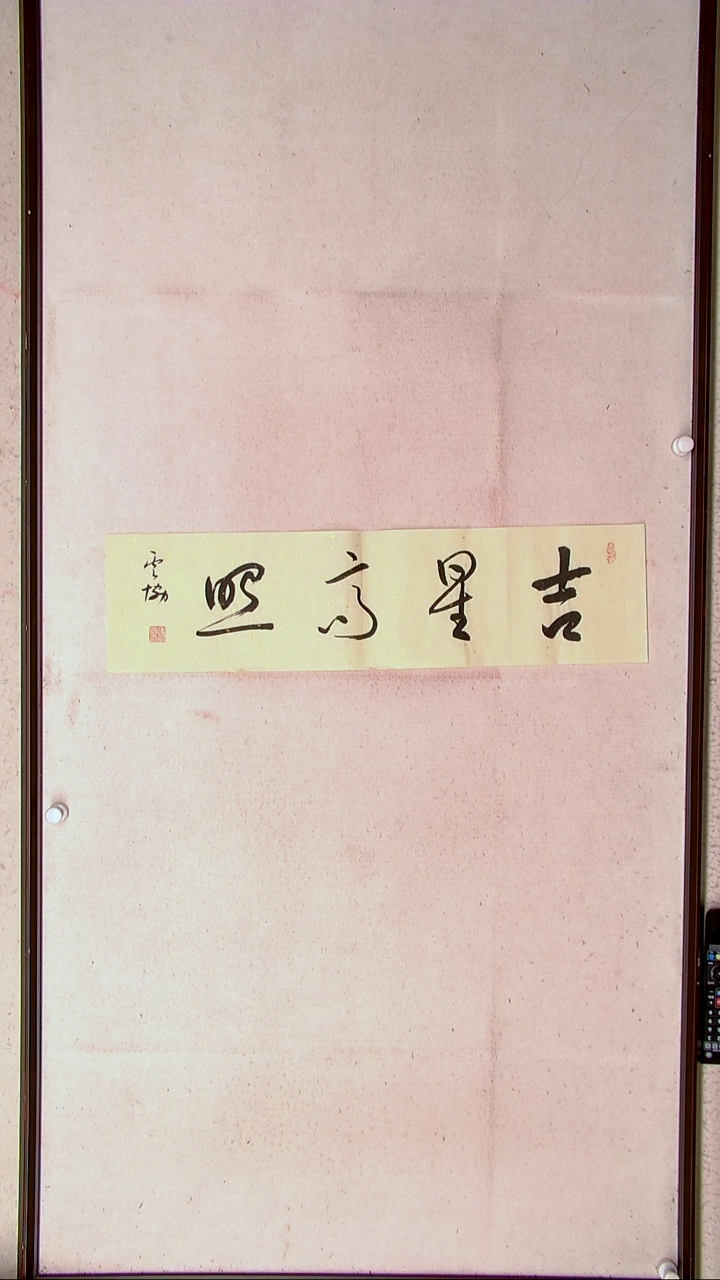 吉星高照
雲